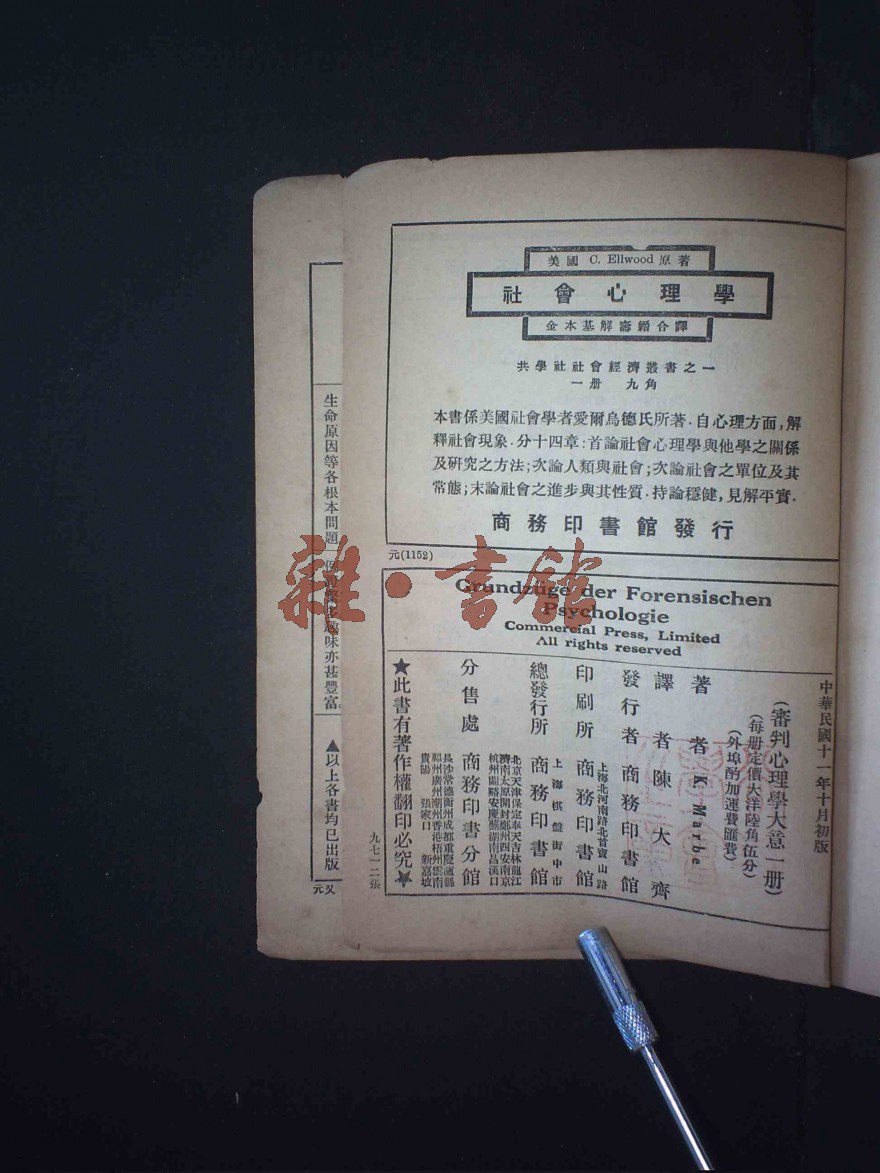 美國 C. Ellwood 原著
社會心理學
金本基解壽縉合譯
共學社社會經濟叢書之一
一册 九角
本書係美國社會學者愛爾烏德氏所著．自心理方面，解
釋社會現象．分十四章：首論社會心理學與他學之關係
及研究之方法；次論人類與社會；次論社會之單位及其
常態；末論社會之進步與其性質．持論穩健，見解平實．
商務印書館發行
元(1152)
Grundzüge der Forensischen
Psychologie
Commercial Press, Limited
All rights reserved
中華民國十一年十月初版
(審判心理學大意一册)
(每册定價大洋陸角伍分)
(外埠酌加運費匯費)
著者 K. Marbe
譯者 陳大齊
發行者 商務印書館
上海北河南路北首寶山路
印刷所 商務印書館
上海棋盤街中市
總發行所 商務印書館
北京天津保定奉天吉林龍江
濟南太原開封鄭州西安南京
杭州蘭谿安慶蕪湖南昌漢口
分售處 商務印書分館
長沙常德衡州成都重慶瀘縣
福州廣州潮州香港梧州雲南
貴陽 張家口 新嘉坡
★此書有著作權翻印必究★
九七一二張
生命原因等各根本問題
味亦甚豐富。
▲以上各書均已出版
元又
雜·書館